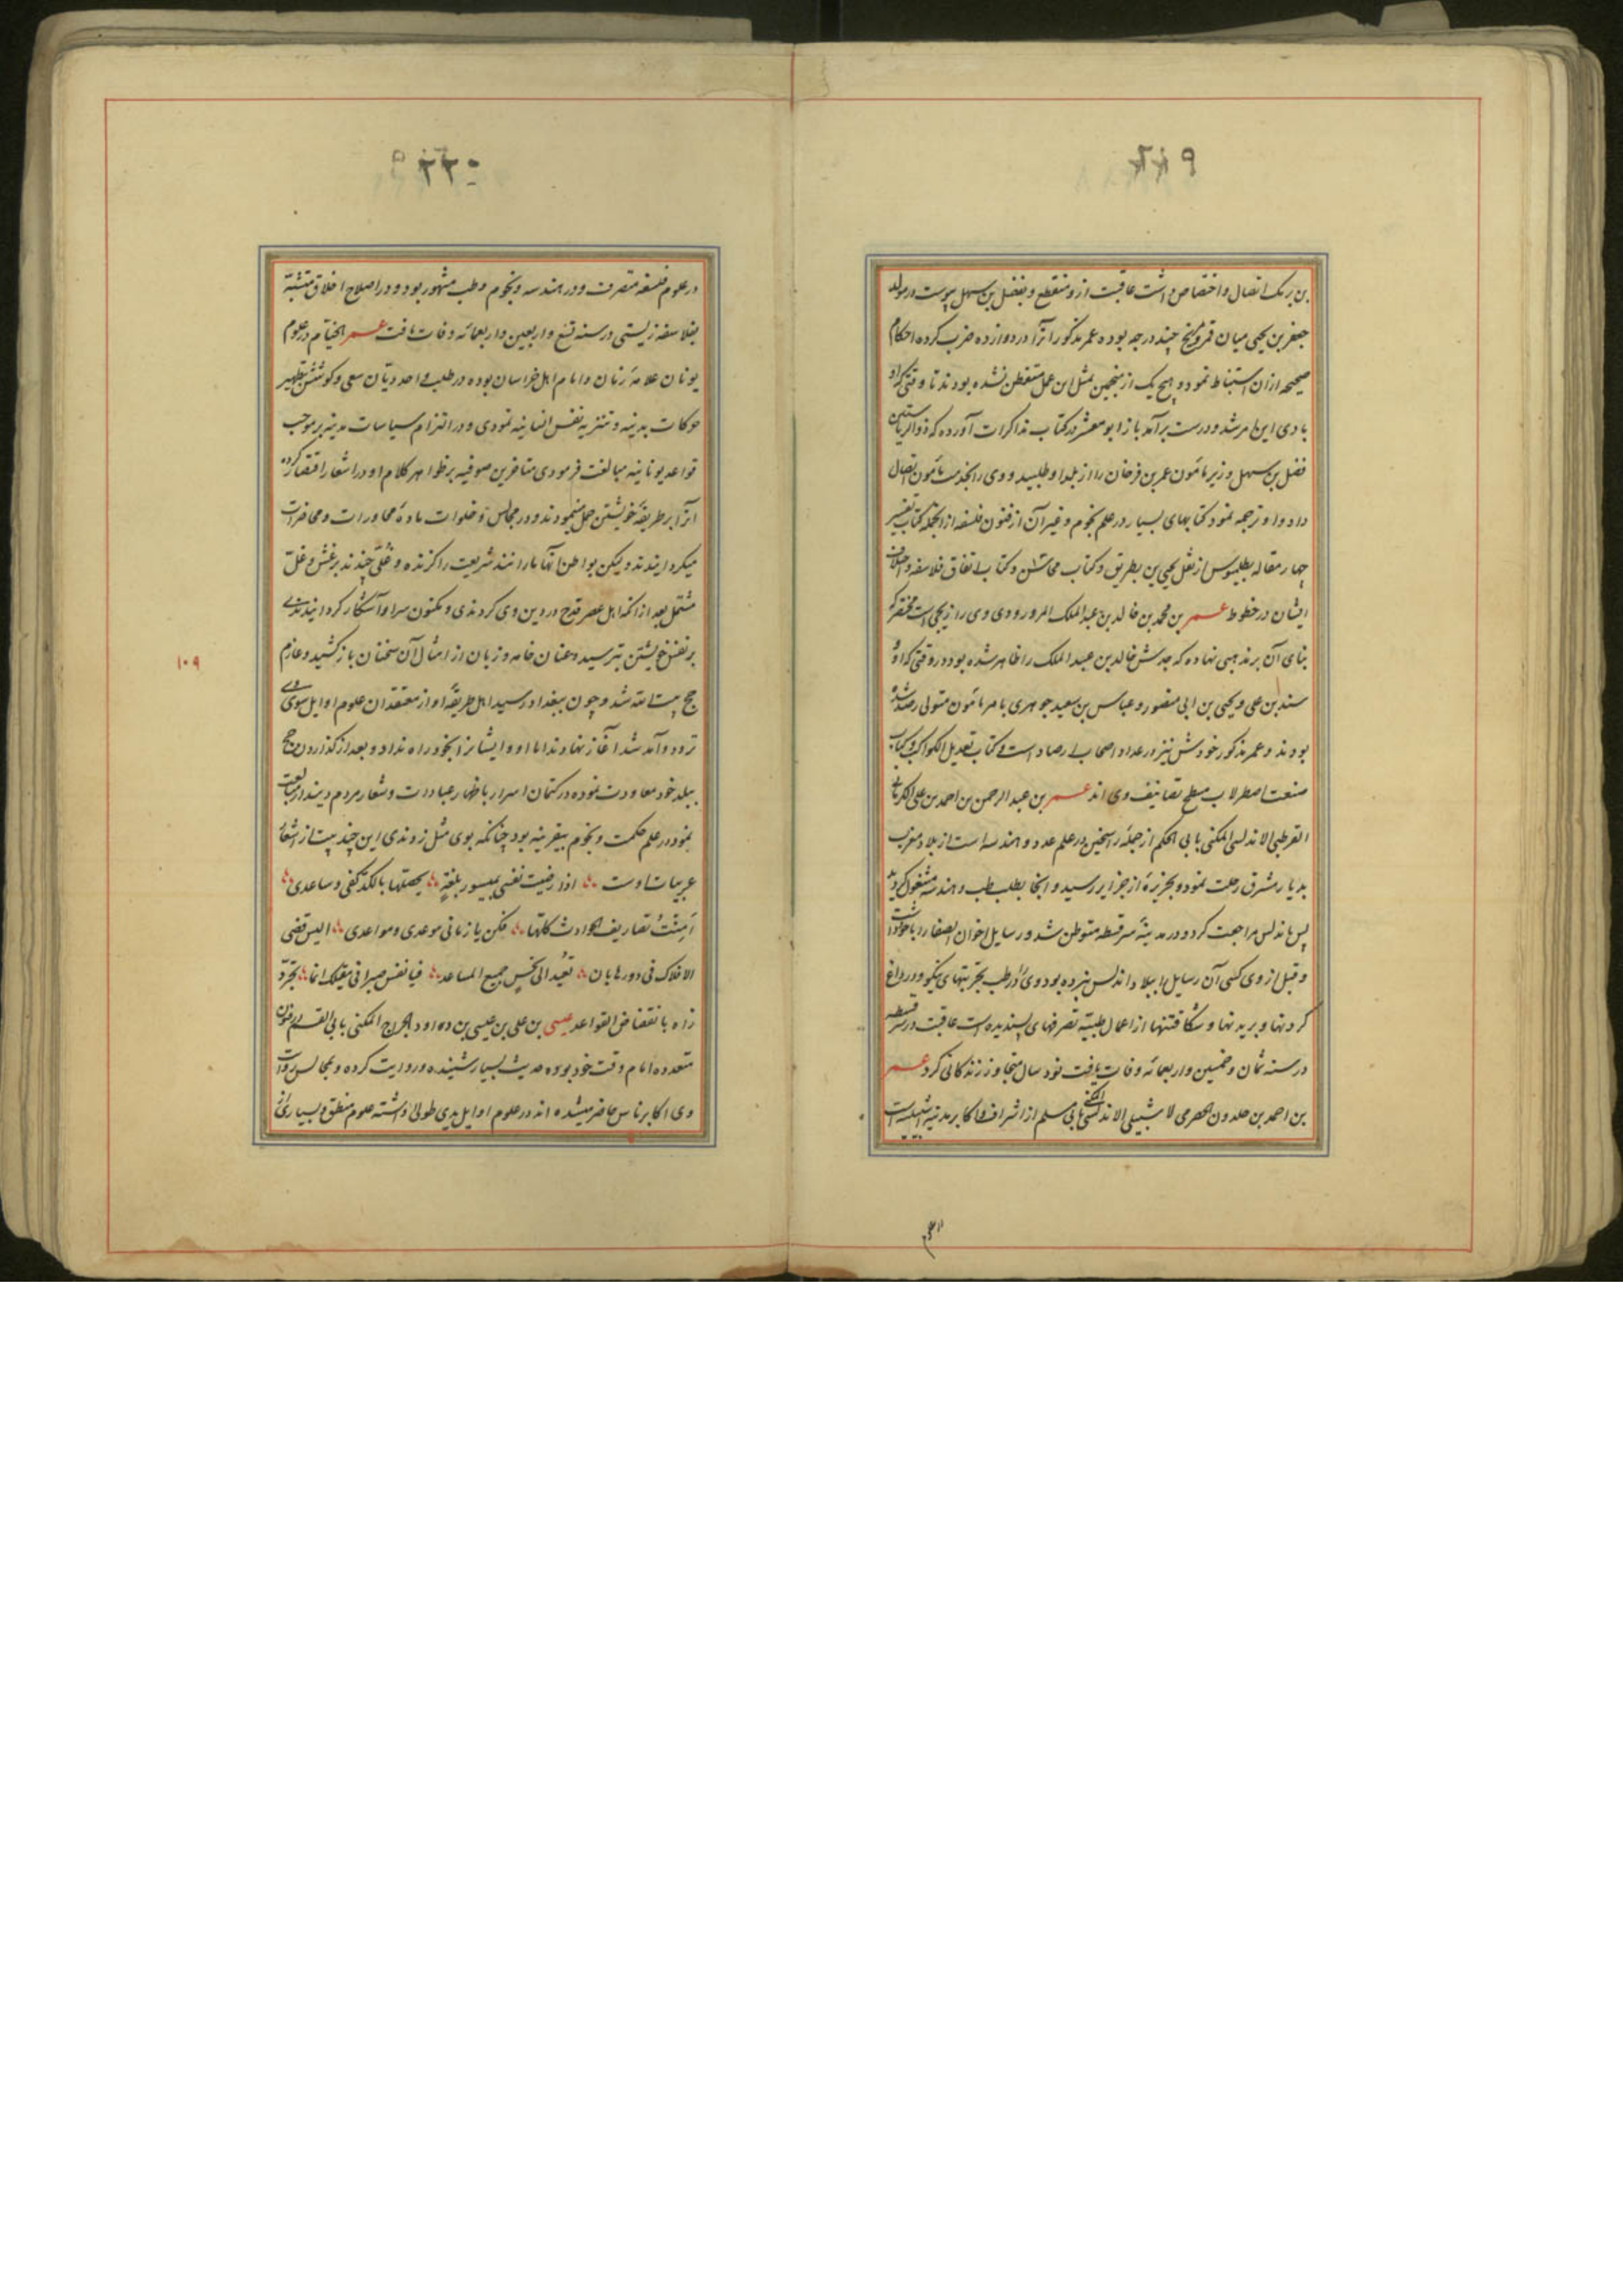 ۲۲۹
بن برمک اتصال و اختصاص داشت عاقبت ازو منقطع و بفضل بن سهل پیوست در مولد
جعفر بن یحیی میان قمر و مریخ چند درجه بوده عمر مذکور آنرا در دوازده ضرب کرده احکام
صحیحه ازان استنباط نمود و هیچ یک از منجمین بمثل این عمل متفطن نشده بودند تا وقتی که او
بادی این امر شد و درست برآمد باز ابو معشر در کتاب مذاکرات آورده که ذو الریاستین
فضل بن سهل وزیر مامون عمر بن فرخان را از بلد او طلبید و وی را بخدمت مامون اتصال
داد و او ترجمه نمود کتابهای بسیار در علم نجوم و غیر آن از فنون فلسفه ازانجمله کتاب تفسیر
چهار مقاله بطلمیوس از نقل یحیی بن بطریق و کتاب محاسن و کتاب اتفاق فلاسفه و اختلاف
ایشان در خطوط عمر بن محمد بن خالد بن عبد الملک المروروذی وی را زیجی است مختصر که
بنای آن بر مذهبی نهاده که جدش خالد بن عبد الملک را ظاهر شده بود در وقتی که او و
سند بن علی و یحیی بن ابی منصور و عباس بن سعید جوهری بامر مامون متولی رصد شده
بودند و عمر مذکور خودش نیز در عداد اصحاب ارصاد است و کتاب تعدیل الکواکب و کتاب
صنعت اصطرلاب مسطح تصانیف وی اند عمر بن عبد الرحمن بن احمد بن علی الکرمانی
القرطبی الاندلسی المکنی بابی الحکم از جمله راسخین در علم عدد و هندسه است از بلاد مغرب
بدیار مشرق رحلت نمود و بجزیره از جزایر رسید و آنجا بطلب طب و هندسه مشغول گردید
پس باندلس مراجعت کرد و در مدینه سرقسطه متوطن شد و رسایل اخوان الصفا را با خود داشت
و قبل از وی کسی آن رسایل ببلاد اندلس نبرده بود وی را در طب تجربتهای نیکو و در داغ
کردنها و بریدنها و شکافتنها از اعمال طبیه تصرفهای پسندیده است عاقبت در سرقسطه
در سنه ثمان و خمسین و اربعمائه وفات یافت نود سال متجاوز زندگانی کرد عمر
بن احمد بن خلدون الحضرمی لاشبیلی الاندلسی المکنی بابی مسلم از اشراف و اکابر مدینه اشبیلیه است
در علوم
۲۳۰
در علوم فلسفه متصرف و در هندسه و نجوم و طب مشهور بود و در اصلاح اخلاق متشبه
بفلاسفه زیستی در سنه تسع و اربعین و اربعمائه وفات یافت عمر الخیام در علوم
یونان علامه زمان و امام اهل خراسان بوده در طلب واحد دیان سعی و کوشش بتطهیر
حرکات بدنیه و تنزیه نفس انسانیه نمودی و در التزام سیاسات مدنیه بر موجب
قواعد یونانیه مبالغت فرمودی متاخرین صوفیه بر ظواهر کلام او در اشعار اقتصار کرده
آنرا بر طریقه خویشتن حمل مینمودند و در مجالس و خلوات ماده محاورات و محاضرات
میگردانیدند ولیکن بواطن آنها مار مانند شریعت را گزنده و غلی چندند بر غش و غل
مشتمل بعد ازانکه اهل عصر قدح در دین وی کردندی و مکنون سر او آشکار گردانیدندی
بر نفس خویشتن بترسید و عنان خامه و زبان از امثال آن سخنان باز کشید و عازم
حج بیت الله شد و چون ببغداد رسید اهل طریقه او از معتقدان علوم اوایل سوی وی
تردد و آمد شد آغاز نهادند اما او ایشانرا بخود راه نداد و بعد از گذاردن حج
ببلد خود معاودت نموده در کتمان اسرار باظهار عبادات و شعار مردم دیندار مبالغت
نمود در علم حکمت و نجوم بیقرینه بود چنانکه بوی مثل زوندی این چند بیت از اشعار
عربیات اوست اذا رضیت نفسی بمیسور بلغة یحصلها بالکد کفی و ساعدی
امنت تصاریف الحوادث کلها فکن یا زمانی موعدی و مواعدی الیس قضی
الافلاک فی دورها بان تعید الی نحس جمیع المساعد فیا نفس صبرا فی مقیلک انما تجر ذ
راه بانقضاض القواعد عیسی بن علی بن عیسی بن داود الجراح المکنی بابی القسم در فنون
متعدده امام وقت خود بوده حدیث بسیار شنیده و روایت کرده و بمجالس روایت
وی اکابر ناس حاضر میشده اند در علوم اوایل یدی طولی داشته علوم منطق و بسیاری از
۱۰۹